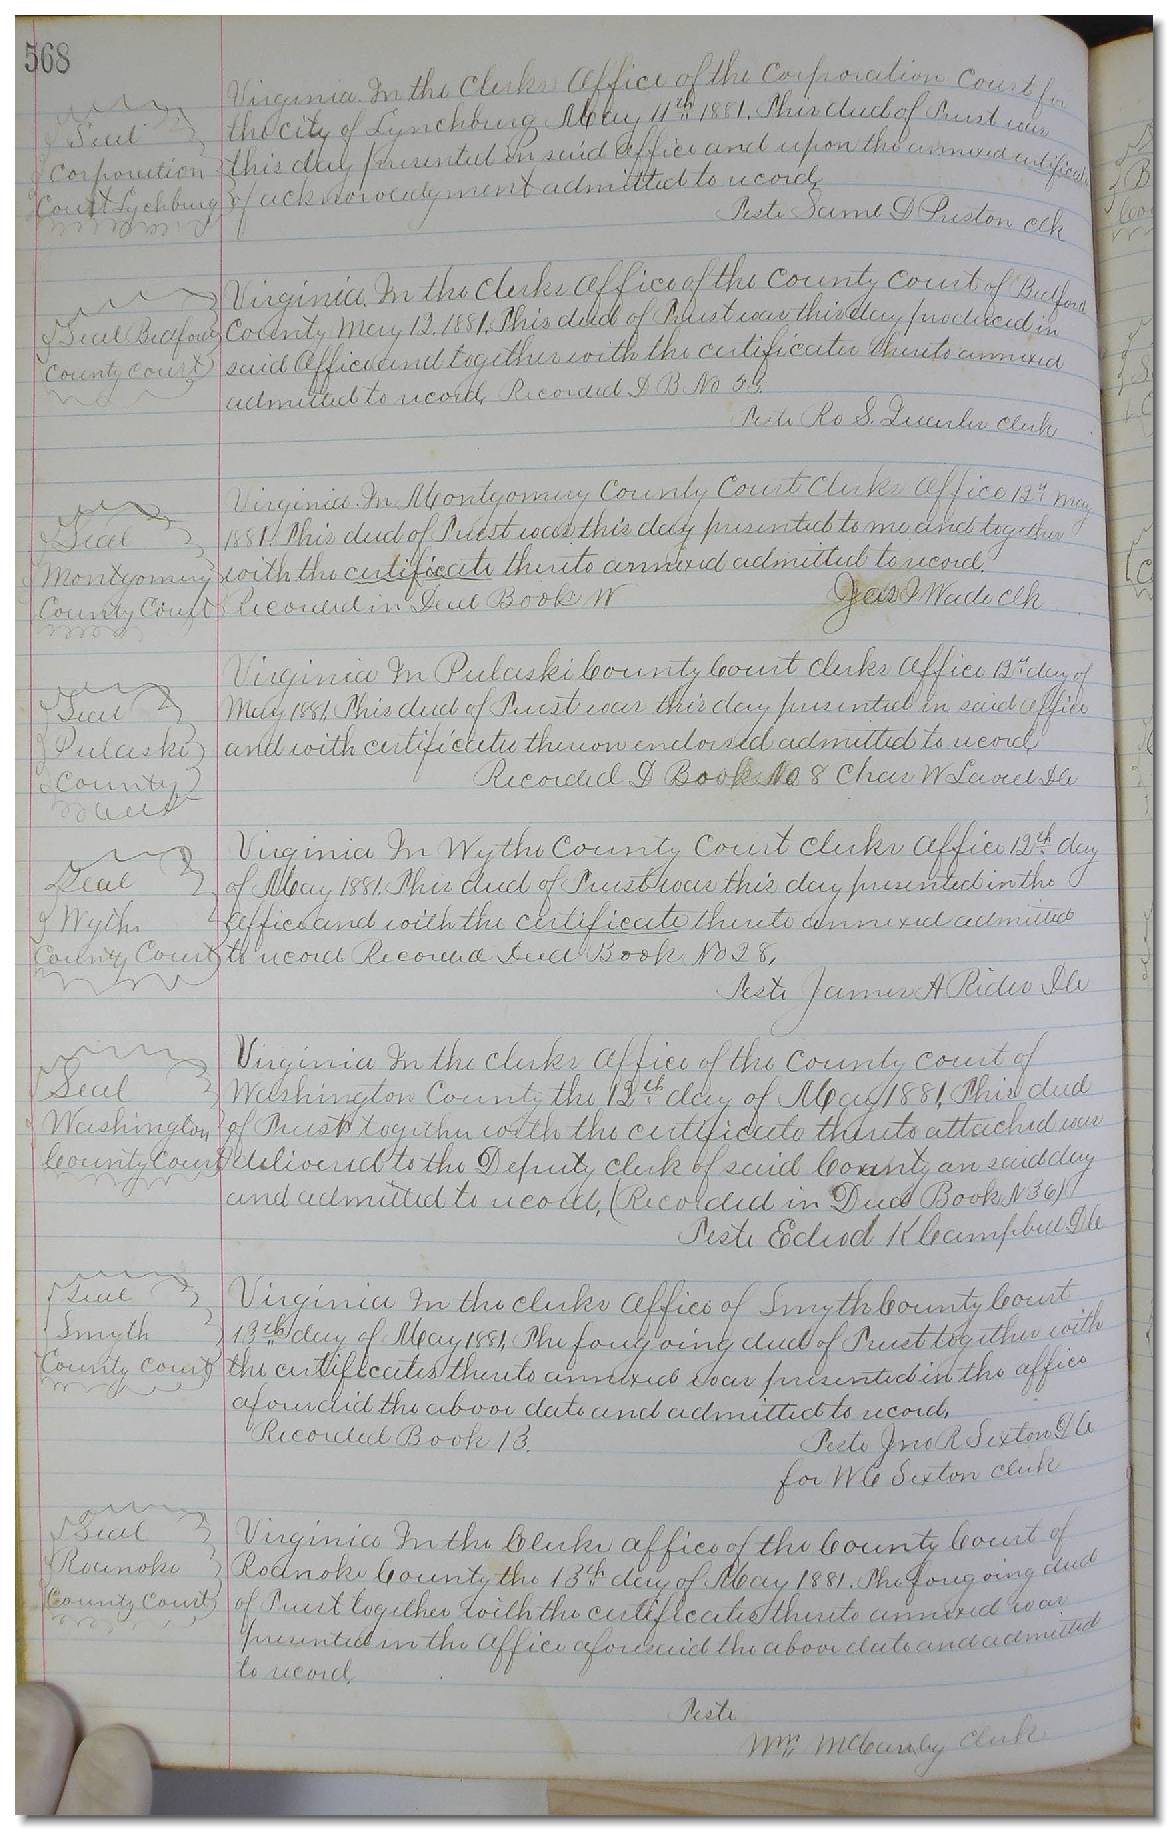 568
Seal
Corporation
Court Lychburg
Virginia. In the Clerks Office of the Corporation Court for
the city of Lynchburg May 11th 1881. This deed of Trust was
this day presented in said Office and upon the annexed certificate
of acknowledgment admitted to record,
Teste Saml D Preston clk
Seal Bedford
County court
Virginia, In the Clerks Office of the County Court of Bedford
County May 12, 1881, This deed of Trust was this day produced in
said Office and together with the certificates thereto annexed
admitted to record, Recorded D B. No
Teste Ro S. clerk
Seal
Montgomery
County Court
Virginia. In Montgomery County Court Clerks Office 12th May
1881, This deed of Trust was this day presented to me and together
with the certificate thereto annexed admitted to record,
Recorded in Deed Book W
Wade clk
Seal
Pulaski
County
Court
Virginia In Pulaski County Court clerks Office 13th day of
May 1881, This deed of Trust was this day presented in said Office
and with certificates thereon endorsed admitted to record,
Recorded D Book No 8 Chas W DC
Seal
Wythe
County Court
Virginia In Wythe County Court clerks Office 12th day
of May 1881. This deed of Trust was this day presented in the
Office and with the certificate thereto annexed admitted
to record Recorded Deed Book No 28,
Teste James A Rider DC
Seal
Washington
County Court
Virginia In the clerks Office of the County court of
Washington County the 12th day of May 1881, This deed
of Trust together with the certificate thereto attached was
delivered to the Deputy clerk of said County on said day
and admitted to record, (Recorded in Deed Book N 36)
Teste K Campbell DC
Seal
Smyth
County court
Virginia In the clerks Office of Smyth County Court
13th day of May 1881, The foregoing deed of Trust together with
the certificates thereto annexed was presented in the office
aforesaid the above date and admitted to record,
Recorded Book 13.
Teste Jno R Sexton DC
for WC Sexton clerk
Seal
Roanoke
County Court
Virginia In the Clerks office of the County Court of
Roanoke County the 13th day of May 1881. The foregoing deed
of Trust together with the certificates thereto annexed was
presented in the Office aforesaid the above date and admitted
to record,
Teste
Wm McCauley Clerk